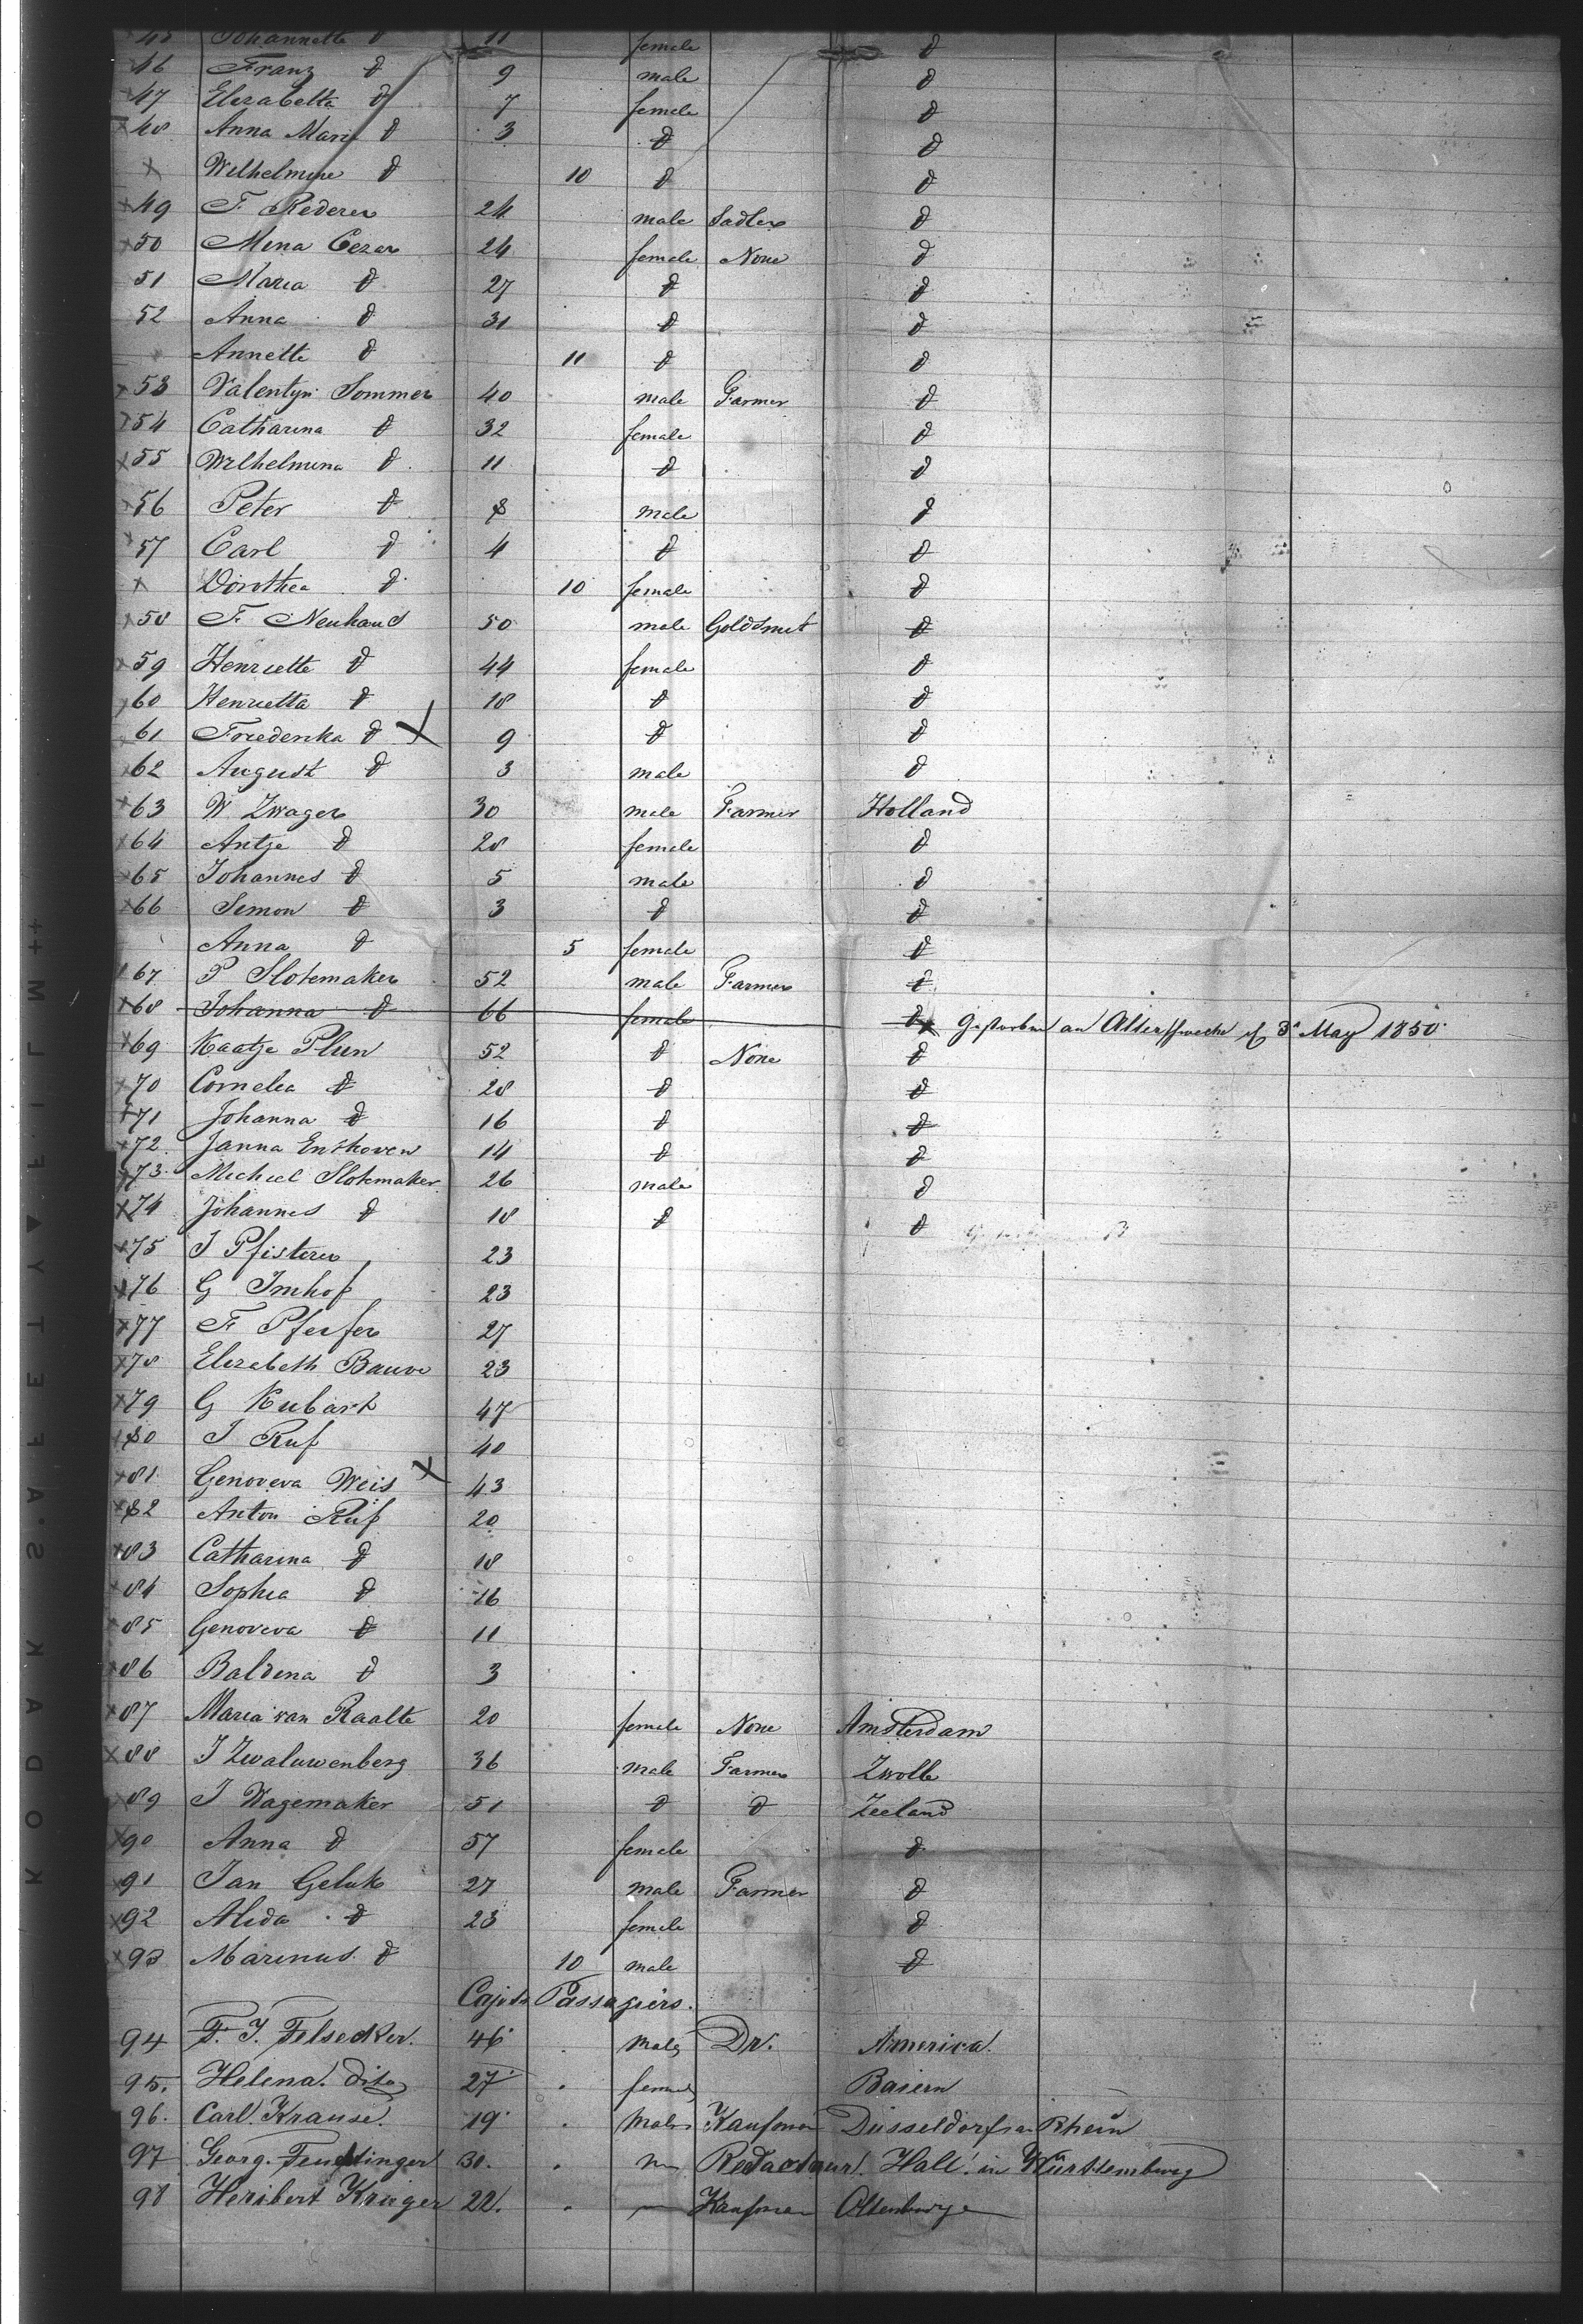 45 Johannette d 11 female d
46 Franz d 9 male d
47 Elizabetta d 7 female d
48 Anna Maria d 3 d d
Wilhelmine d 10 d d
49 F. Rederer 24 male Sadler d
50 Mina Cezar 24 female None d
51 Maria d 27 d d
52 Anna d 31 d d
Annette d 11 d d
53 Valentyn Sommer 40 male Farmer d
54 Catharina d 32 female d
55 Wilhelmina d 11 d d
56 Peter d 8 male d
57 Carl d 4 d d
Dorothea d 10 female d
58 F. Neuhaus 50 male Goldsmet d
59 Henriette d 44 female d
60 Henrietta d 18 d d
61 Friederika d 9 d d
62 August d 3 male d
63 W Zwager 30 male Farmer Holland
64 Antje d 28 female d
65 Johannes d 5 male d
66 Simon d 3 d d
Anna d 5 female d
67 P Slotemaker 52 male Farmer d
68 Johanna d 66 female d Gestorben an Altersschwäche 3 May 1850
69 Kaatje Plun 52 d None d
70 Cornelia d 28 d d
71 Johanna d 16 d d
72 Janna Enthoven 14 d d
73 Michiel Slotemaker 26 male d
74 Johannes d 18 d d
75 J Pfisterer 23
76 G Imhof 23
77 F Pfeifer 27
78 Elizabeth Bauer 23
79 G Kubark 47
80 J Ruf 40
81 Genoveva Weis 43
82 Anton Ruf 20
83 Catharina d 18
84 Sophia d 16
85 Genoveva d 11
86 Baldina d 3
87 Maria van Raalte 20 female None Amsterdam
88 J Zwaluwenberg 36 male Farmer Zwolle
89 J Wagemaker 51 d d Zeeland
90 Anna d 57 female d
91 Jan Geluk 27 male Farmer d
92 Alida d 23 female d
93 Marinus d 10 male d
Cajute Passagiers.
94 F. J. Felsecker. 46 male Dr. America.
95. Helena. dito 27 female Baiern
96. Carl. Krause. 19 male Kaufman Düsseldorf am Rhein
97 Georg. Feuchtinger 30. Redacteur. Hall. in Württemberg
98 Heribert Krüger 22. Kaufman Oldenburg